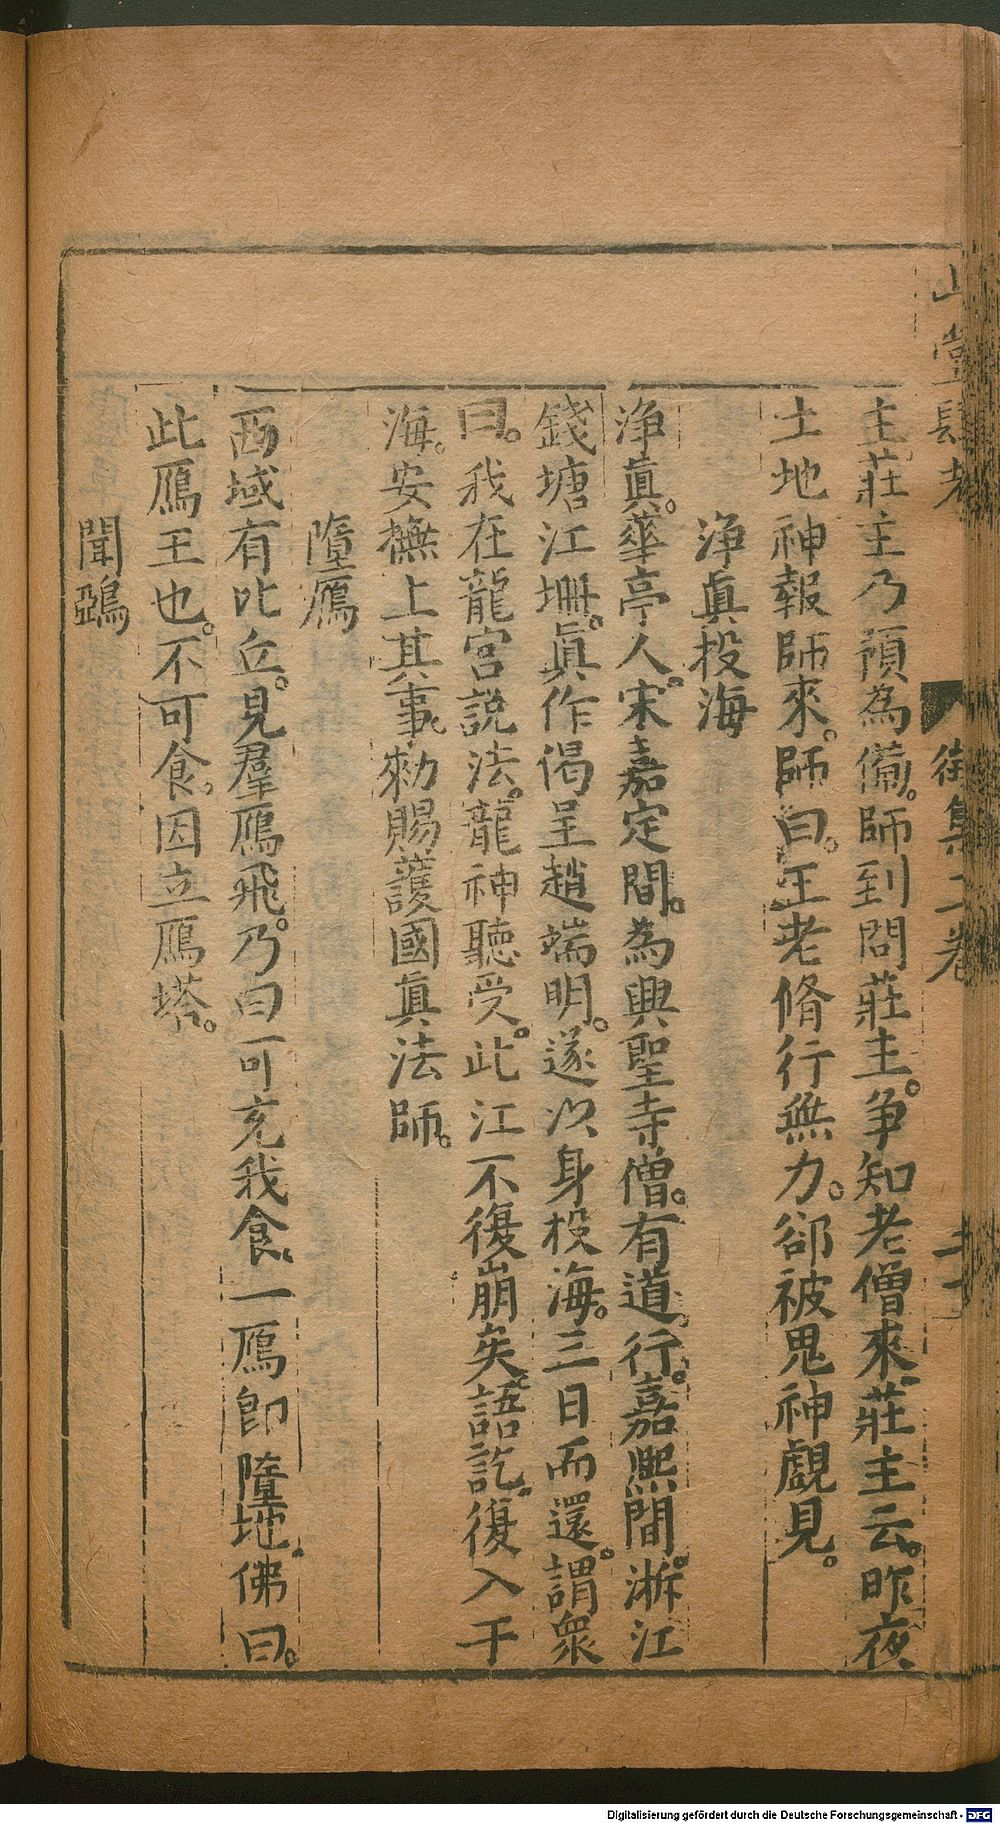 山堂肆考 徵集二卷
主莊主乃預為備。師到問莊主。争知老僧來。莊主云。昨夜
土地神報師來。師曰。王老脩行無力。郤被鬼神覷見。
淨眞投海
淨眞。華亭人。宋嘉定間。為興聖寺僧。有道行。嘉熈間。淛江
錢塘江坍。眞作偈呈趙端明。遂以身投海。三日而還。謂衆
曰。我在龍宫説法。龍神聽受。此江不復崩矣。語訖。復入于
海。安撫上其事。勑賜護國眞法師。
墮鴈
西域有比丘。見羣鴈飛。乃曰可充我食。一鴈卽墮地。佛曰。
此鴈王也。不可食。因立鴈塔。
聞鵶
Digitalisierung gefördert durch die Deutsche Forschungsgemeinschaft - DFG